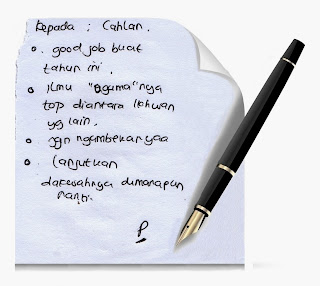 Kepada : Cahlan.
• good job buat
tahun ini.
• Ilmu "agama"nya
top diantara ikhwan
yg lain.
• jgn ngambekan yaa
• lanjutkan
dakwahnya dimanapun
nanti.
P